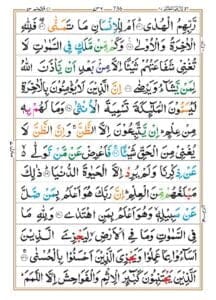 رَّبِّهِمُ الْهُدٰى ۞ اَمْ لِلْاِنْسَانِ مَا تَمَنّٰى ۞ فَلِلّٰهِ
الْاٰخِرَةُ وَالْاُوْلٰى ۞ وَكَمْ مِّنْ مَّلَكٍ فِى السَّمٰوٰتِ لَا
تُغْنِىْ شَفَاعَتُهُمْ شَيْـًٔا اِلَّا مِنْۢ بَعْدِ اَنْ يَّاْذَنَ اللّٰهُ
لِمَنْ يَّشَآءُ وَيَرْضٰى ۞ اِنَّ الَّذِيْنَ لَا يُؤْمِنُوْنَ بِالْاٰخِرَةِ
لَيُسَمُّوْنَ الْمَلٰٓئِكَةَ تَسْمِيَةَ الْاُنْثٰى ۞ وَمَا لَهُمْ بِهٖ
مِنْ عِلْمٍ ؕ اِنْ يَّتَّبِعُوْنَ اِلَّا الظَّنَّ ۚ وَاِنَّ الظَّنَّ لَا
يُغْنِىْ مِنَ الْحَقِّ شَيْـًٔا ۞ فَاَعْرِضْ عَنْ مَّنْ تَوَلّٰى ۙ
عَنْ ذِكْرِنَا وَلَمْ يُرِدْ اِلَّا الْحَيٰوةَ الدُّنْيَا ۞ ذٰلِكَ
مَبْلَغُهُمْ مِّنَ الْعِلْمِ ؕ اِنَّ رَبَّكَ هُوَ اَعْلَمُ بِمَنْ ضَلَّ
عَنْ سَبِيْلِهٖ ۙ وَهُوَ اَعْلَمُ بِمَنِ اهْتَدٰى ۞ وَلِلّٰهِ مَا
فِى السَّمٰوٰتِ وَمَا فِى الْاَرْضِ ۙ لِيَجْزِىَ الَّذِيْنَ
اَسَآءُوْا بِمَا عَمِلُوْا وَيَجْزِىَ الَّذِيْنَ اَحْسَنُوْا بِالْحُسْنٰى ۞
اَلَّذِيْنَ يَجْتَنِبُوْنَ كَبٰٓئِرَ الْاِثْمِ وَالْفَوَاحِشَ اِلَّا اللَّمَمَ ؕ